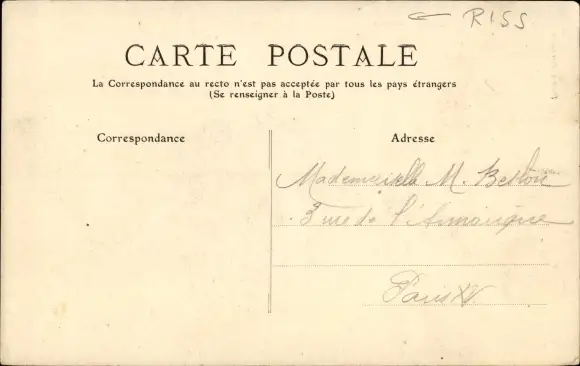 RISS
CARTE POSTALE
La Correspondance au recto n'est pas acceptée par tous les pays étrangers
(Se renseigner à la Poste)
Correspondance
Adresse
Mademoiselle M.
3 rue de l'Armorique
Paris XV